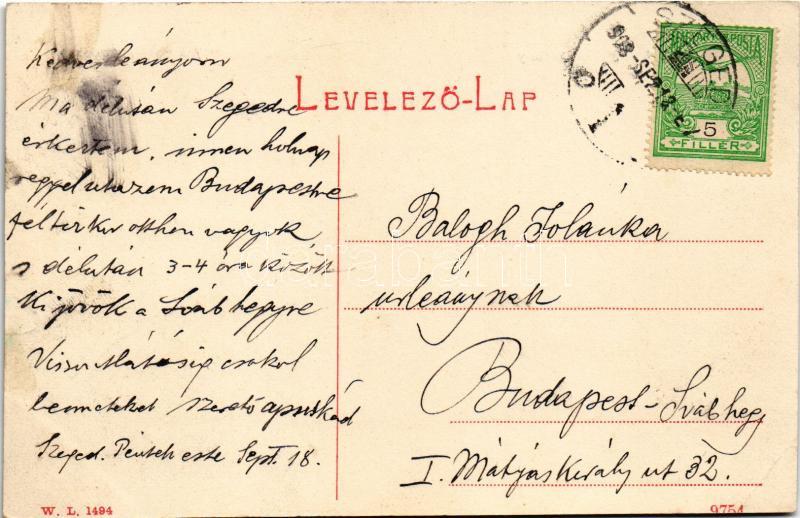 Kedves leányom
Ma délután Szegedre
érkeztem, innen holnap
reggel utazom Budapestre
fél tizkor otthon vagyok
s délután 3-4 óra között
kijövök a Svábhegyre
Viszontlátásig csókol
benneteket szerető apuskád
Szeged. Péntek este Sept. 18.
LEVELEZŐ-LAP
SZEGED
908 SEP.18
MAGYAR KIR. POSTA
5
FILLÉR
Balogh Jolánka
urleánynak
Budapest-Svábhegy
I. Mátyás Király ut 32.
W. L. 1494
9754